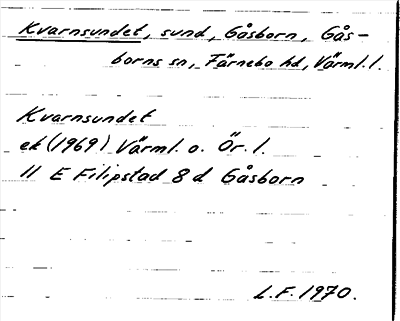 Kvarnsundet, sund, Gåsborn, Gås-
borns sn, Färnebo hd, Värml. l.
Kvarnsundet
ek (1969) Värml. o. Ör. l.
11 E Filipstad 8 d Gåsborn
L.F. 1970.